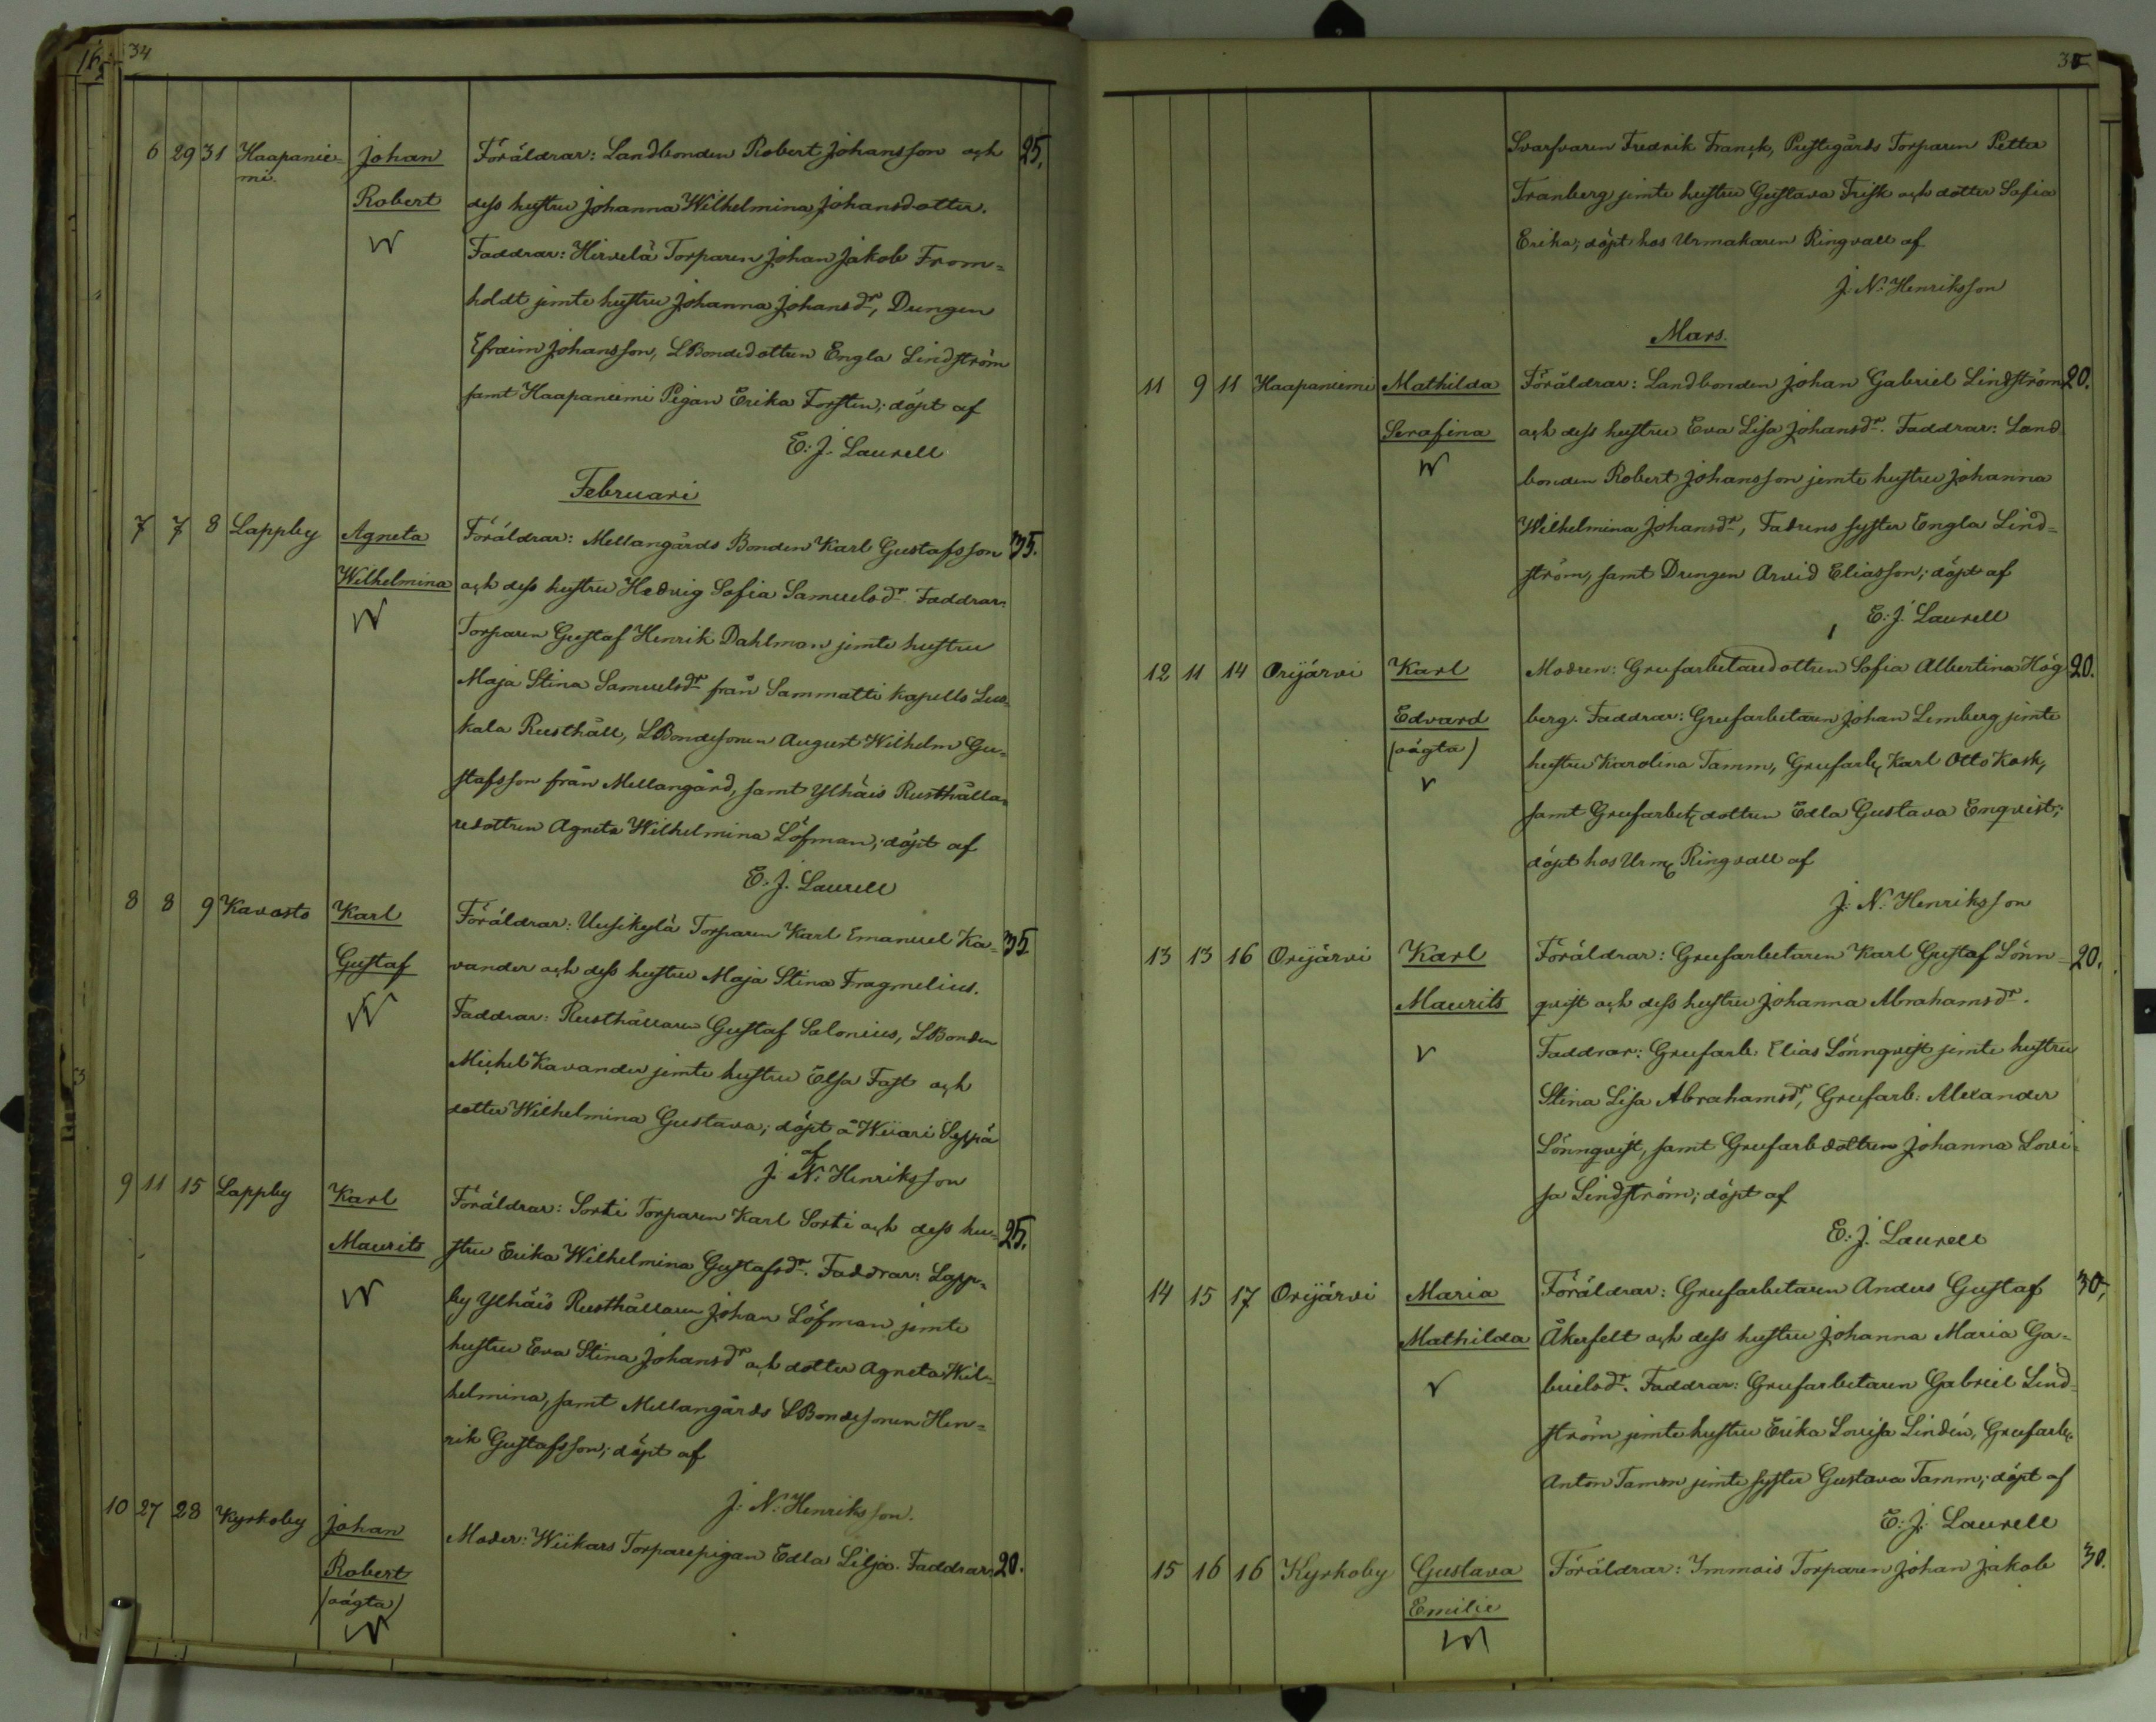 16
34
6 29 31 Haapanie= Johan Föräldrar: Landbonden Robert Johansson och 25.
mi. Robert dess hustru Johanna Wilhelmina Johansdotter.
Faddrar: Hirvelä Torparen Johan Jakob From=
holdt jemte hustru Johanna Johansdr, Drengen
Efraim Johansson, LBondedottren Engla Lindström
samt Haapaniemi Pigan Erika Forstén; döpt af
E. J. Laurell
Februari
7 7 8 Lappby Agneta Föräldrar: Mellangårds Bonden Karl Gustafsson 35.
Wilhelmina och dess hustru Hedvig Sofia Samuelsdr. Faddrar:
Torparen Gustaf Henrik Dahlman jemte hustru
Maja Stina Samuelsdr från Sammatti kapells Lus=
kala Rusthåll, LBondesonen August Wilhelm Gu=
stafsson från Mellangård, samt Ylhäis Rusthålla=
redottren Agneta Wilhelmina Löfman; döpt af
E. J. Laurell
8 8 9 Kavasto Karl Föräldrar: Uusikylä Torparen Karl Emanuel Ka= 35
Gustaf vander och dess hustru Maja Stina Fragmelius.
Faddrar: Rusthållaren Gustaf Salonius, LBonden
Michel Kavander jemte hustru Elsa Fast och
dotter Wilhelmina Gustava; döpt å Wiiari Seppä
af
J. N. Henriksson
9 11 15 Lappby Karl Föräldrar: Sorti Torparen Karl Sorti och dess hu= 25.
Maurits stru Erika Wilhelmina Gustafsdr. Faddrar: Lapp=
by Ylhäis Rusthållaren Johan Löfman jemte
hustru Eva Stina Johansdr och dotter Agneta Wil=
helmina, samt Mellangårds LBondesonen Hen=
rik Gustafsson; döpt af
J. N. Henriksson.
10 27 28 Kyrkoby Johan Moder: Wiikars Torparepigan Edla Lilja. Faddrar: 20.
Robert
(oägta)
35
Svarfvaren Fredrik Franck, Prestegårds Torparen Petter
Tranberg jemte hustru Gustava Frisk och dotter Sofia
Erika; döpt hos Urmakaren Ringvall af
J. N. Henriksson
Mars.
11 9 11 Haapaniemi Mathilda Föräldrar: Landbonden Johan Gabriel Lindström 20.
Serafina och dess hustru Eva Lisa Johansdr. Faddrar: Land=
bonden Robert Johansson jemte hustru Johanna
Wilhelmina Johansdr, Fadrens syster Engla Lind=
ström, samt Drengen Arvid Eliasson; döpt af
E. J. Laurell
12 11 14 Orijärvi Karl Modren: Grufarbetaredottren Sofia Albertina Hög 20.
Edvard berg. Faddrar: Grufarbetaren Johan Lemberg jemte
(oägta) hustru Karolina Tamm, Grufarb. Karl Otto Kosk,
samt Grufarbet. dottren Edla Gustava Enqvist;
döpt hos Urm. Ringvall af
J. N. Henriksson
13 13 16 Orijärvi Karl Föräldrar: Grufarbetaren Karl Gustaf Lönn= 20.
Maurits qvist och dess hustru Johanna Abrahamsdr.
Faddrar: Grufarb: Elias Lönnqvist jemte hustru
Stina Lisa Abrahamsdr, Grufarb: Alexander
Lönnqvist, samt Grufarb dottren Johanna Lovi=
sa Lindström; döpt af
E. J. Laurell
14 15 17 Orijärvi Maria Föräldrar: Grufarbetaren Anders Gustaf 30,
Mathilda Åkerfelt och dess hustru Johanna Maria Ga=
brielsdr. Faddrar: Grufarbetaren Gabriel Lind=
ström jemte hustru Erika Lovisa Lindén, Grufarb.
Anton Tamm jemte syster Gustava Tamm; döpt af
E. J. Laurell
15 16 16 Kyrkoby Gustava Föräldrar: Immois Torparen Johan Jakob 30.
Emilie